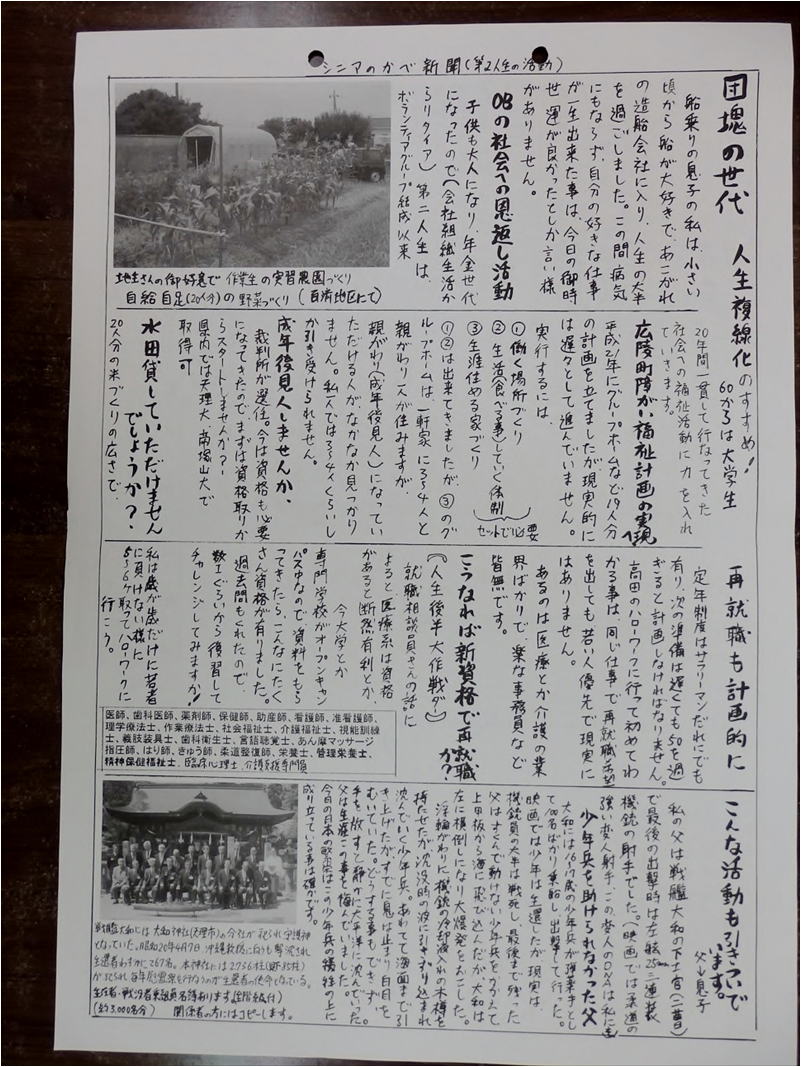 シニアのかべ新聞(第2人生の活動)
団塊の世代 人生複線化のすすめ!
60からは大学生
船乗りの息子の私は、小さい
頃から船が大好きで、あこがれ
の造船会社に入り、人生の大半
を過ごしました。この間病気
にもならず、自分の好きな仕事
が一生出来た事は、今日の御時
世運が良かったとしか言い様
がありません。
OBの社会への恩返し活動
子供も大人になり、年金世代
になったので(会社組織生活か
らリタイア)第二人生は、
ボランティアグループ結成以来
20年間一貫して行なってきた
社会への福祉活動に力を入れ
ていきます。
広陵町障がい福祉計画の実現へ
平成21年にグループホームなど19人分
の計画を立てましたが、現実的に
は遅々として進んでいません。
実行するには、
①働く場所づくり
②生活(食べる事)していく体制
③生涯住める家づくり
セットで必要
①②は出来てきましたが、③のグ
ループホームは、一軒家に3~4人と
親がわり1人が住みますが、
親がわり(成年後見人)になってい
ただける人が、なかなか見つかり
ません。私1人では3~4人くらいし
か引き受けられません。
成年後見人しませんか、
裁判所が選任。今は資格も必要
になってきたので、まずは資格取りか
らスタートしませんか?
県内では天理大 帝塚山大で
取得可
水田貸していただけません
でしょうか?
20人分の米づくりの広さで、
地主さんの御好意で 作業生の実習農園づくり
自給自足(20人分)の野菜づくり(百済地区にて)
再就職も計画的に
定年制度はサラリーマンだれにでも
有り、次の準備は遅くても50を過
ぎると計画しなければなりません。
高田のハローワークに行って初めてわ
かる事は、同じ仕事で再就職希望
を出しても若い人優先で現実に
はありません。
あるのは医療とか介護の業
界ばかりで、楽な事務員など
皆無です。
こうなれば新資格で再就職
か?
(人生後半大作戦ダー)
就職相談員さんの話に
よると医療系は資格
があると断然有利とか、
今大学とか
専門学校がオープンキャン
パス中なので資料をもら
ってきたら、こんなにたく
さん資格が有りました。
過去問もくれたので、
数Iぐらいから復習して
チャレンジしてみますか!
私は歳が歳だけに若者
に負けない様に
5~6ケ取ってハローワークに
行こう。
医師、歯科医師、薬剤師、保健師、助産師、看護師、准看護師、
理学療法士、作業療法士、社会福祉士、介護福祉士、視能訓練
士、義肢装具士、歯科衛生士、言語聴覚士、あん摩マッサージ
指圧師、はり師、きゅう師、柔道整復師、栄養士、管理栄養士、
精神保健福祉士、臨床心理士、介護支援専門員
こんな活動も引きついで
います。
父→息子
私の父は戦艦大和の下士官(二曹)
で最後の出撃時は左舷25mm三連装
機銃の射手でした。(映画では柔道の
強い変人射手、この変人のDNAは私にも)
少年兵を助けられなかった父
大和には16、17歳の少年兵が理業手とし
て100名ばかり乗船し出撃して行った。
映画では少年は生還したが現実は、
機銃員の大半は戦死し、最後まで残った
父はすくんで動けない少年兵をかかえて
上甲板から海に飛び込んだが、大和は
左に横倒しになり大爆発をおこした。
浮輪がわりに機銃の冷却液入れの木樽を
持たせたが沈没時の波に引きずり込まれ
沈んでいく少年兵。あわてて海面まで引
き上げたがすでに息は止まり白目を
むいていた。どうする事もできずに、
手を放すと静かに太平洋に沈んでいった。
父は生涯この事を悔んでいました。
今日の日本の繁栄はこの少年兵の犠牲の上に
成り立っている事は確かです。
戦艦大和には 大和神社(天理市)の分社が祀られ守護神
となっていた。昭和20年4月7日 沖縄救援に向うも撃沈され
生還者わずかに267名。本神社には2736柱(県内35柱)
がまつられ、毎年慰霊祭を行なうのが生還者の使命となっている。
生存者・戦没者乗組員名簿あります(全階級付)
(約3,000名分) 関係者の方にはコピーします。